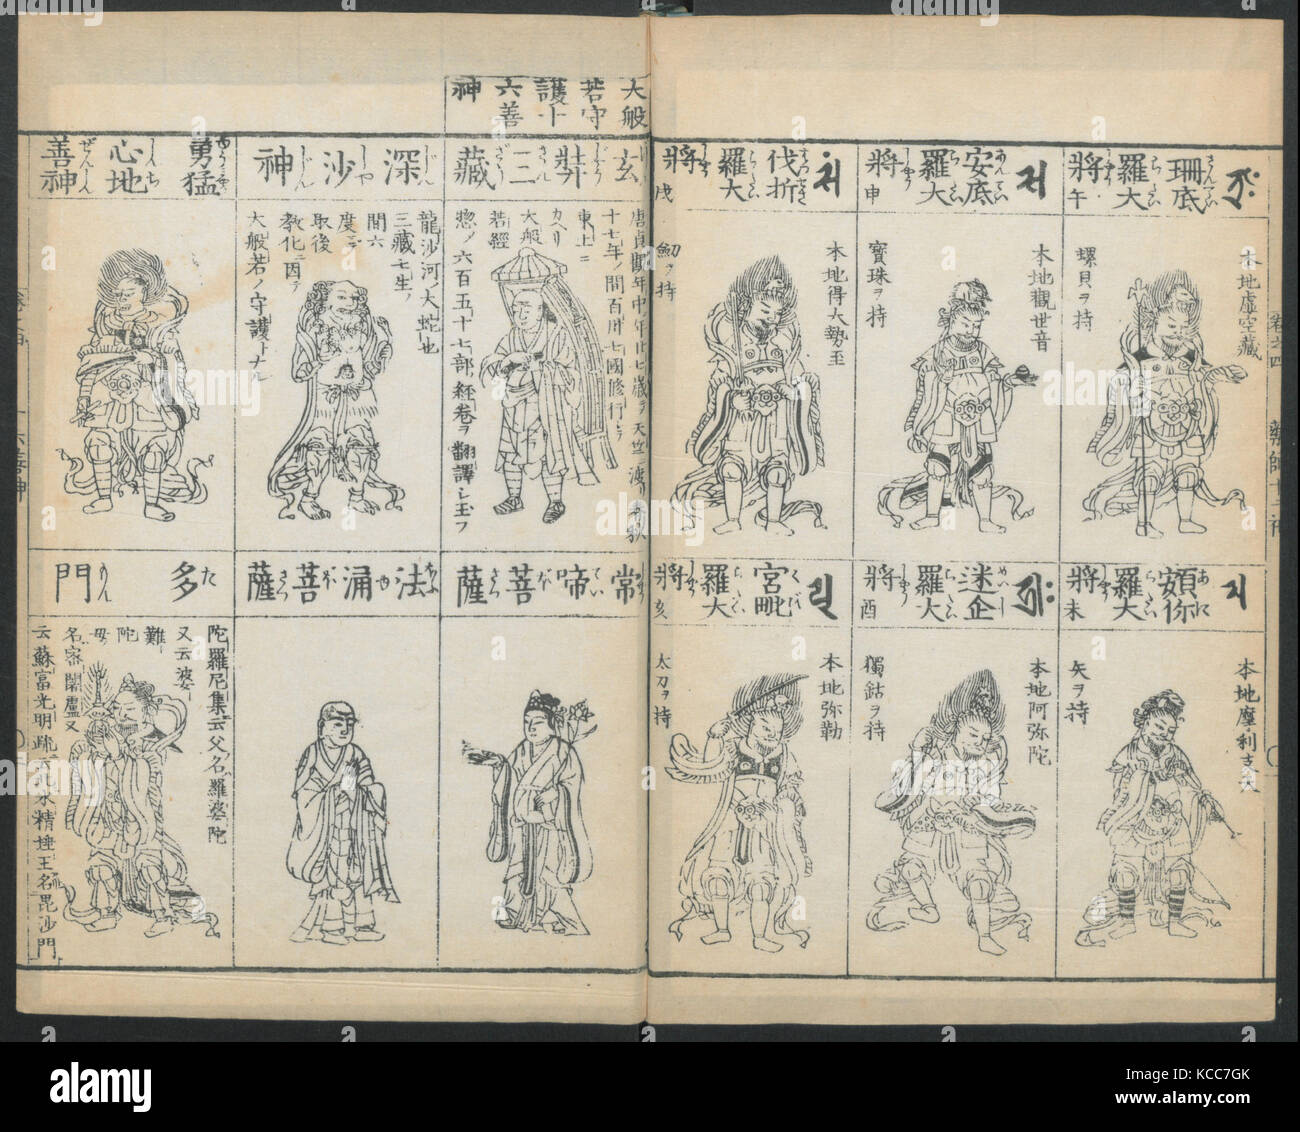 珊底
羅大
將
午
本地虚空藏
螺貝ヲ持
頞你
羅大
將
未
本地摩利支天
矢ヲ持
安底
羅大
將
申
本地觀世音
寶珠ヲ持
迷企
羅大
將
酉
本地阿弥陀
獨鈷ヲ持
伐折
羅大
將
戌
本地得大勢至
劒ヲ持
宮毗
羅大
將
亥
本地弥勒
太刀ヲ持
大般
若守
護十
六善
神
玄弉三藏
東土ニ
カヘリ
大般
若經
惣ノ六百五十七部経卷ヲ翻譯シ玉フ
常啼菩薩
深沙神
龍沙河ノ大蛇也
三藏七生ノ
間六
度マテ
取後
教化ニ因テ
大般若ノ守護トナル
法涌菩薩
勇猛
心地
善神
多門
陀羅尼集云父名羅婆陀
又云婆
難陀
云蘇富光明疏二八水精埵王名毘沙門
alamy
Image ID: KCC7GK
www.alamy.com